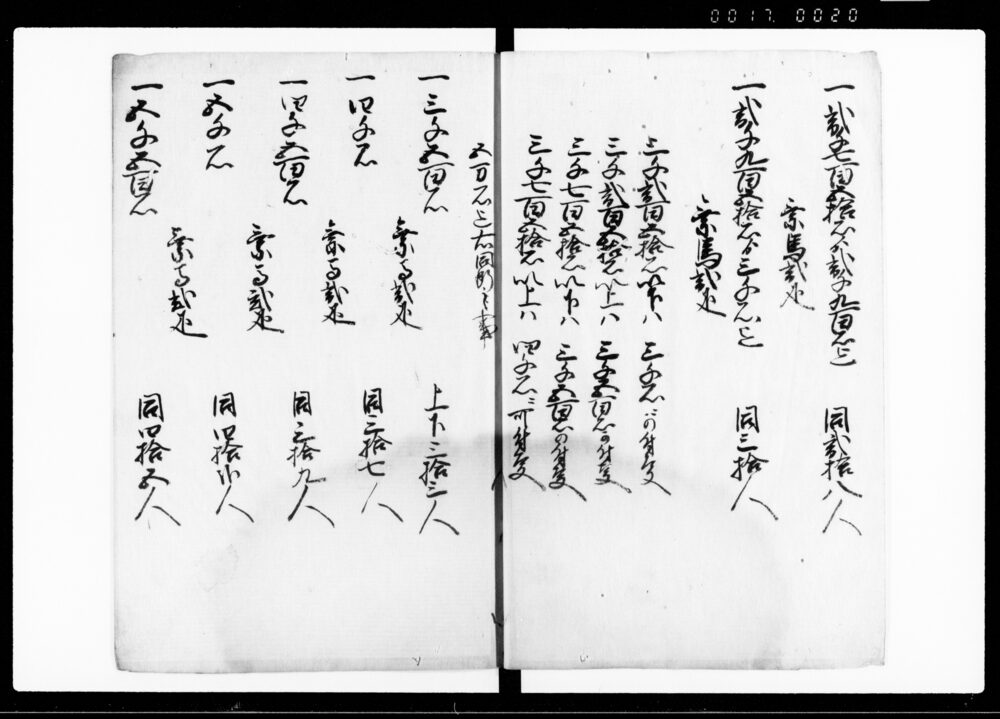 0017. 0020
一弐千七百五拾石ゟ弐千九百石迄 同弐拾八人
乗馬弐疋
一弐千九百五拾石ゟ三千石迄 同三拾人
乗馬弐疋
三千弐百五拾石以下ハ 三千石ニ可付事
三千弐百五拾石以上ハ 三千五百石ニ可付事
三千七百五拾石以下ハ 三千五百石ニ可付事
三千七百五拾石以上ハ 四千石ニ可付事
五万石迄右同断之事
一三千五百石 上下三拾三人
乗馬弐疋
一四千石 同三拾七人
乗馬弐疋
一四千五百石 同三拾九人
乗馬弐疋
一五千石 同四拾弐人
乗馬弐疋
一五千五百石 同四拾五人